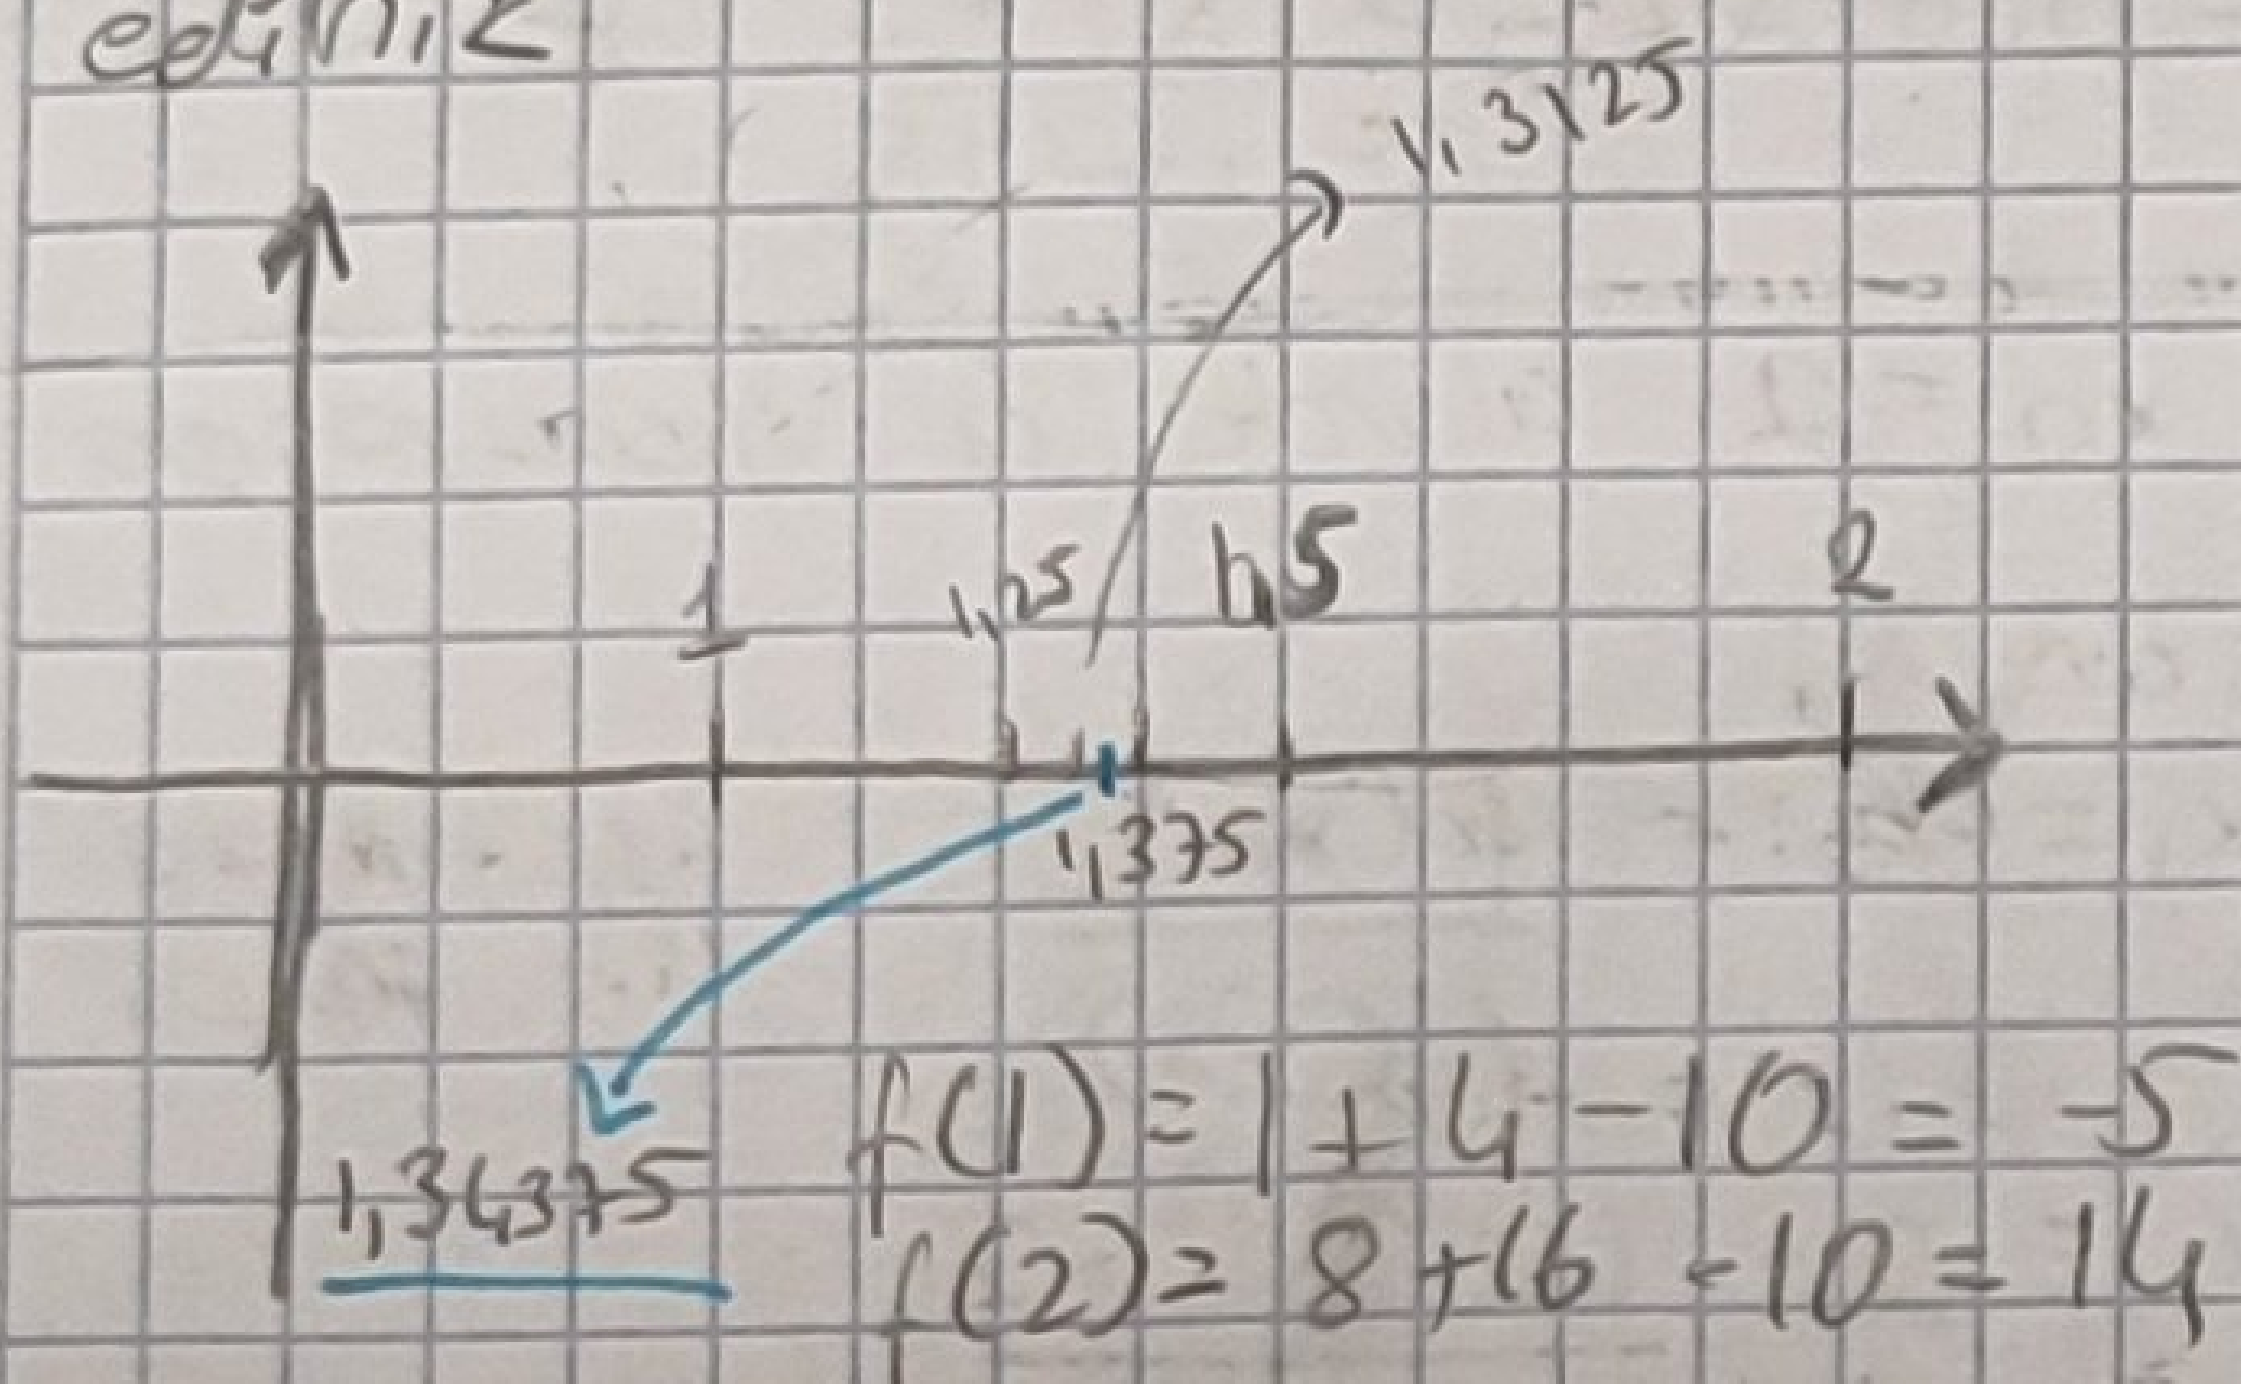 ediniz
1,3125
1
1,25
1,5
2
1,375
1,34375
f(1) = 1 + 4 - 10 = -5
f(2) = 8 + 16 - 10 = 14